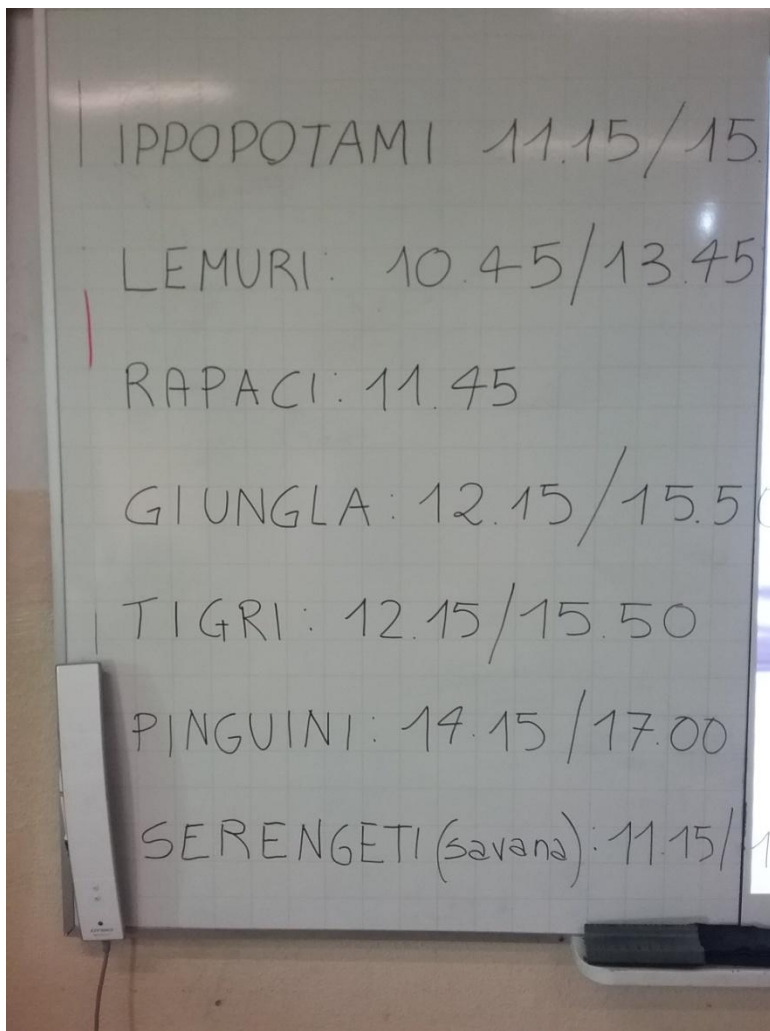 IPPOPOTAMI 11.15/15.
LEMURI: 10.45/13.45
RAPACI: 11.45
GIUNGLA: 12.15/15.5
TIGRI: 12.15/15.50
PINGUINI: 14.15/17.00
SERENGETI (savana): 11.15/1